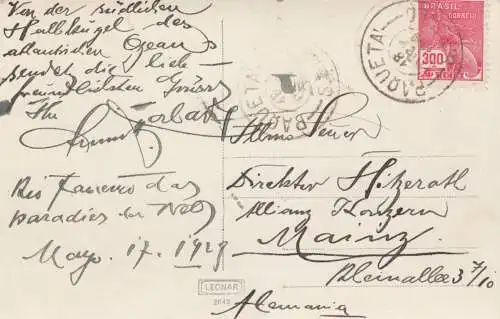 Von der südlichen
Halbkugel des
atlantischen Ozeans
sendet die lieb-
freundlichsten Grüsse
Ihr
Rio Janeiro das
paradies der Welt
Mayo. 17. 1928
BRASIL
CORREIO
300
PAQUETA
PAQUETA
Illmo Senor
Direktor Hilzeroth
Allianz Konzern
Mainz
Rheinallee 3 7/10
Alemania
LEONAR